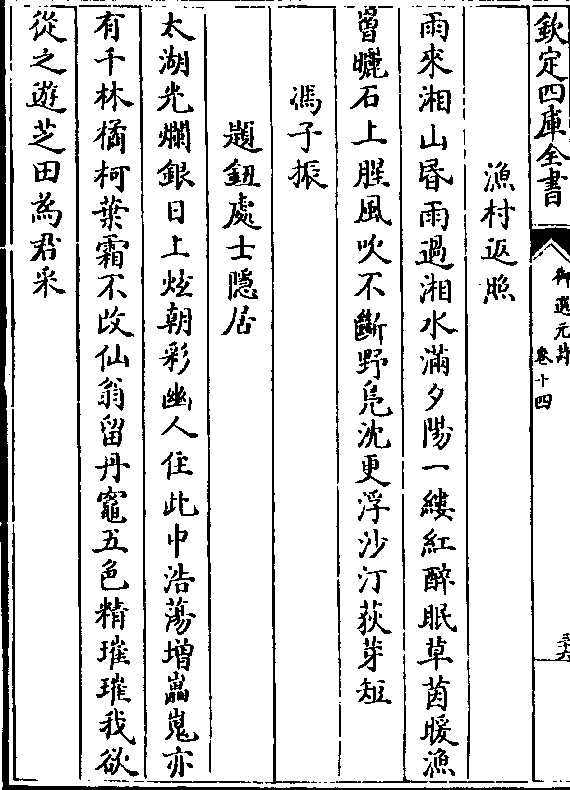 欽定四庫全書
御選元詩
卷十四
三十六
漁村返照
雨來湘山昏雨過湘水滿夕陽一縷紅醉眠草茵暖漁
罾曬石上腥風吹不斷野鳧沈更浮沙汀荻芽短
馮子振
題鈕處士隱居
太湖光爛銀日上炫朝彩幽人住此中浩蕩增嵓嵬亦
有千林橘柯葉霜不改仙翁留丹竈五色精璀璀我欲
從之遊芝田為君采